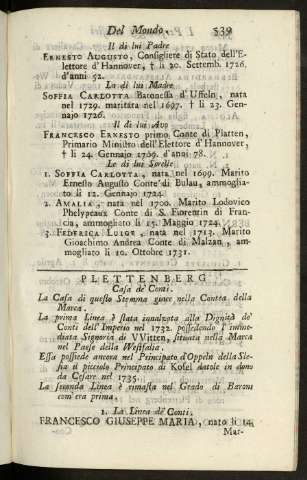 Del Mondo. 539
Il di lui Padre
ERNESTO AUGUSTO, Consigliere di Stato dell'E-
lettore d'Hannover, † li 20. Settemb. 1726.
d'anni 52.
La di lui Madre
SOFFIA CARLOTTA Baronessa d'Uffeln, nata
nel 1729. maritata nel 1697. † li 23. Gen-
najo 1726.
Il di lui Avo
FRANCESCO ERNESTO primo Conte di Platten,
Primario Ministro dell'Elettore d'Hannover,
† li 24. Gennajo 1709. d'anni 78.
Le di lui Sorelle
1. SOFFIA CARLOTTA, nata nel 1699. Marito
Ernesto Augusto Conte di Bulau, ammoglia-
to li 12. Gennajo 1724.
2. AMALIA, nata nel 1700. Marito Lodovico
Phelypeaux Conte di S. Fiorentin di Fran-
cia, ammogliato li 15. Maggio 1724.
3. FEDERICA LUIGIA, nata nel 1713. Marito
Gioachimo Andrea Conte di Malzan, am-
mogliato li 10. Ottobre 1731.
PLETTENBERG
Casa de' Conti.
La Casa di questo Stemma giace nella Contea della
Marca.
La prima Linea è stata innalzata alla Dignità de'
Conti dell'Imperio nel 1732. possedendo l'imme-
diata Signoria di VVitten, situata nella Marca
nel Paese della Westfalia.
Essa possiede ancora nel Principato d'Oppeln della Sle-
sia il picciolo Principato di Kosel datole in dono
da Cesare nel 1735.
La seconda Linea è rimasta nel Grado di Baroni
com'era prima.
1. La Linea de' Conti.
FRANCESCO GIUSEPPE MARIA, nato li 14.
Mar-